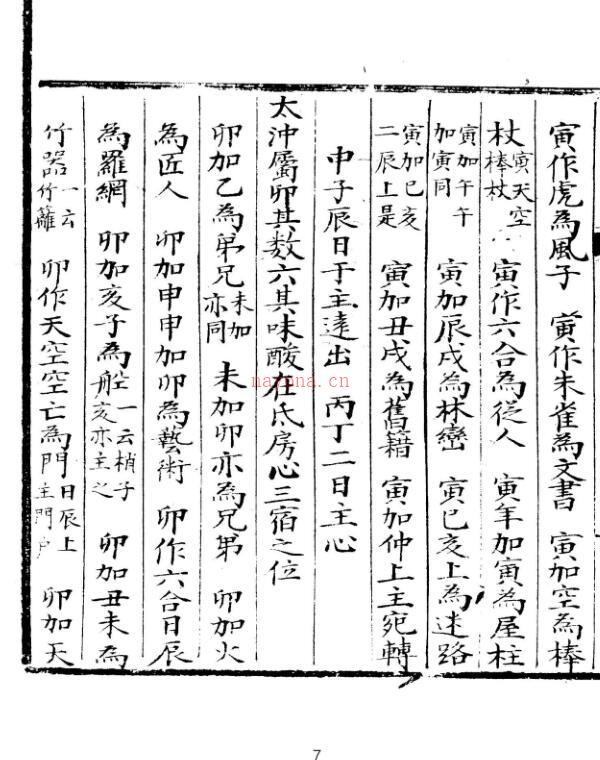 寅作虎為風子　寅作朱雀為文書　寅加空為棒
杖寅天空棒杖　寅作六合為從人　寅年加寅為屋柱
寅加午午加寅同　寅加辰戌為林巒　寅巳亥上為迷路
寅加巳亥二辰上是　寅加丑戌為舊籍　寅加仲上主宛轉
申子辰日于主遠出　丙丁二日主心
太沖屬卯其数六其味酸在氐房心三宿之位
卯加乙為弟兄未加亦同　未加卯亦為兄弟　卯加火
為匠人　卯加申申加卯為藝術　卯作六合日辰
為羅網　卯加亥子為船一云梢子亥亦主之　卯加丑未為
竹器一云竹籬　卯作天空空亡為門日辰上主門户　卯加天
naruna.cn
7